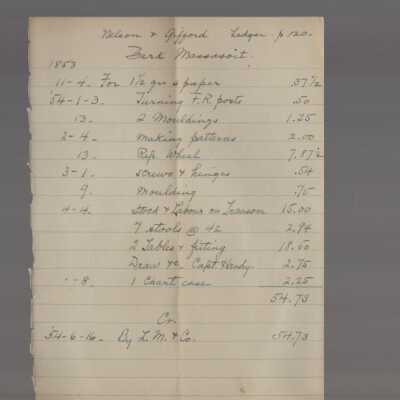 Nelson & Gifford Ledger p 120.
Bark Massasoit.
1853
11-4. For 1½ qrs paper .37½
'54-1-3. Turning F.R. posts .50
13. 2 Mouldings 1.25
2-4. Making patterns 2.00
13. Rep. Wheel 7.87½
3-1. screws & hinges .54
9. Moulding .75
4-4. Stock & Labour on Transom 15.00
7 stools @ 42 2.94
2 Tables & fiting 18.50
Draw &c. Capt Handy 2.75
" -8. 1 Chart case 2.25
54.73
Cr.
'54-6-16. By L. M. & Co. 54.73